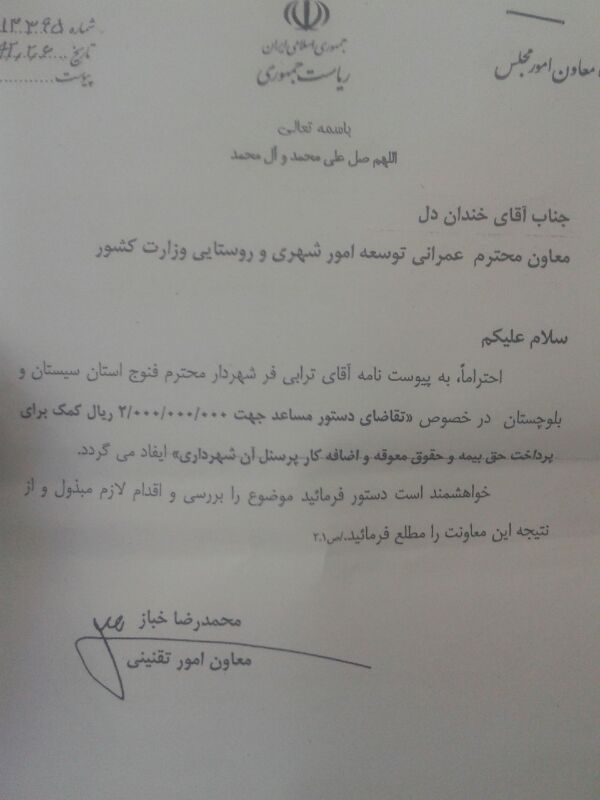 جمهوری اسلامی ایران
ریاست جمهوری
معاون امور مجلس
شماره
تاریخ
پیوست
باسمه تعالی
اللهم صل علی محمد و آل محمد
جناب آقای خندان دل
معاون محترم عمرانی توسعه امور شهری و روستایی وزارت کشور
سلام علیکم
احتراماً، به پیوست نامه آقای ترابی فر شهردار محترم فنوج استان سیستان و
بلوچستان در خصوص «تقاضای دستور مساعد جهت ۲/۰۰۰/۰۰۰/۰۰۰ ریال کمک برای
پرداخت حق بیمه و حقوق معوقه و اضافه کار پرسنل آن شهرداری» ایفاد می گردد.
خواهشمند است دستور فرمائید موضوع را بررسی و اقدام لازم مبذول و از
نتیجه این معاونت را مطلع فرمائید./ص۲۰۱
محمدرضا خباز
معاون امور تقنینی